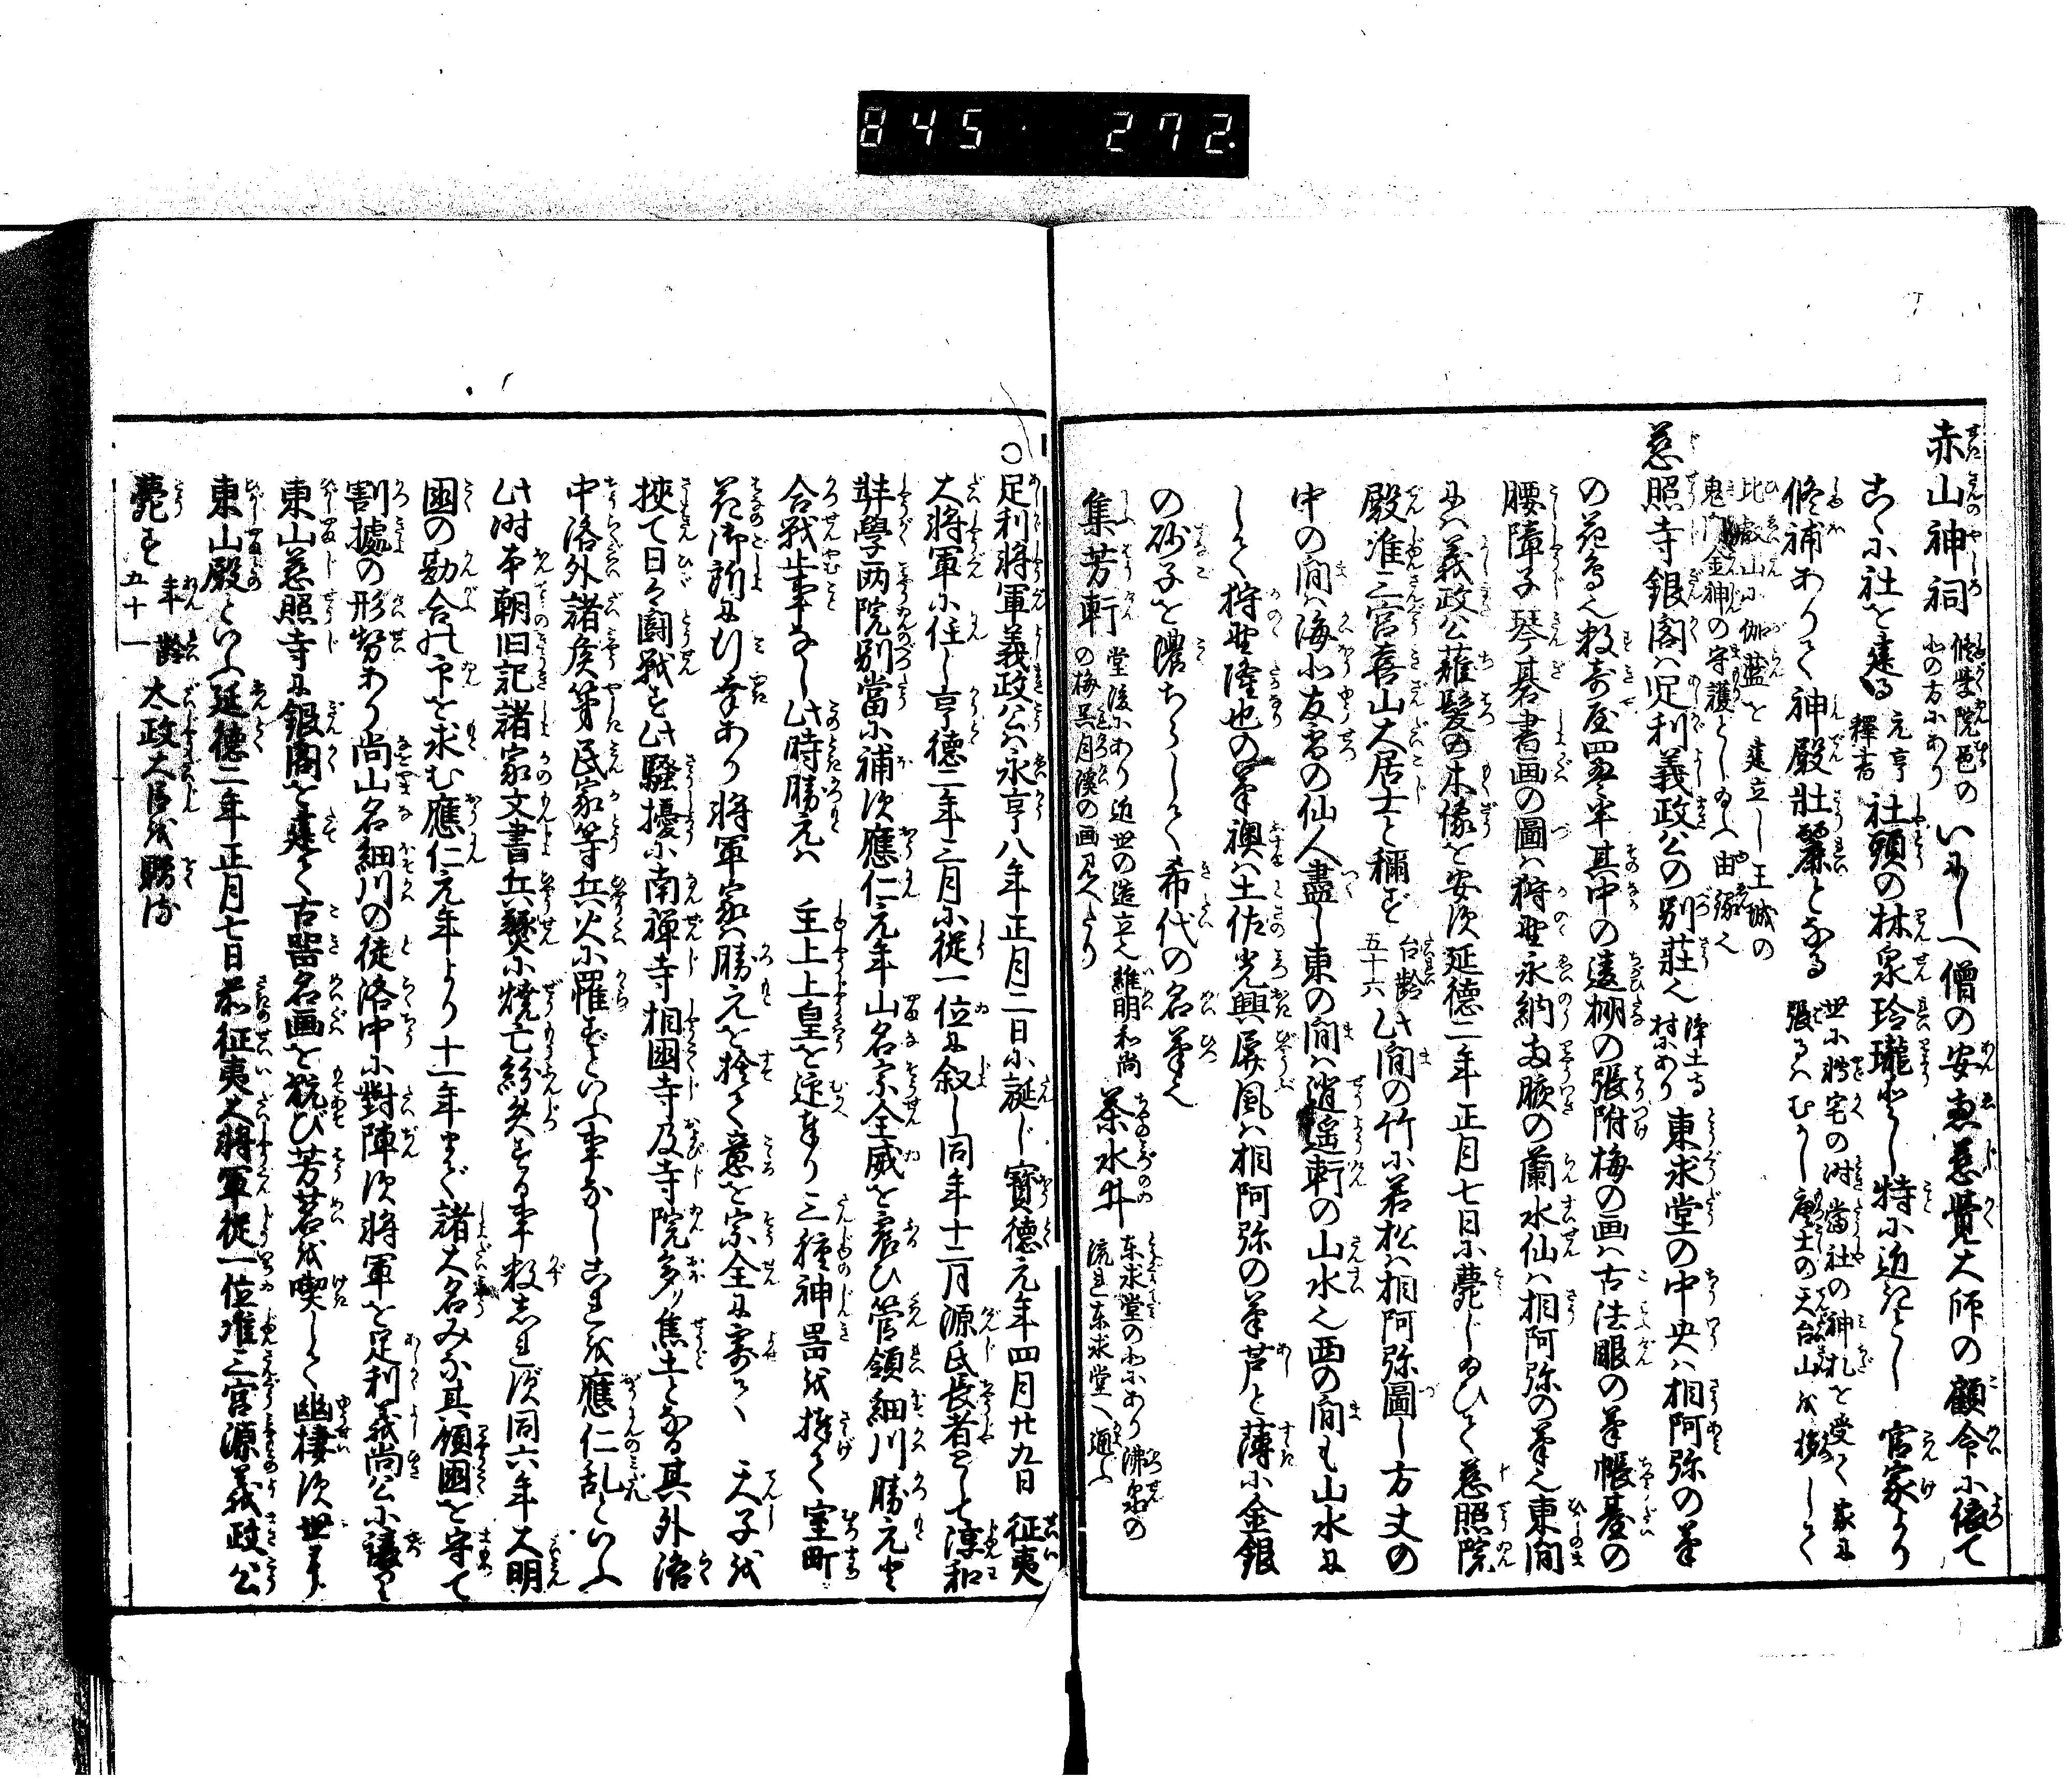 845 272.
赤山神祠 修学院邑の北の方にあり いにしへ僧の安恵慈覚大師の顧命に依て
こゝに社を建る 元亨釋書 社頭の林泉玲瓏として特に近きとし 官家より
修補ありて神殿壮麗となる 世に轉宅の時當社の神札を受て家に張るはむかし唐土の天台山を擬して
比叡山に伽藍を建立し王城の鬼門金神の守護としゐふ由縁也
慈照寺銀閣は足利義政公の別荘也 浄土寺村にあり 東求堂の中央は相阿弥の筆
の花鳥也数寄屋四畳半其中の違棚の張附梅の画は古法眼の筆帳䑓の
腰障子琴碁書画の圖は狩野永納両脇の蘭水仙は相阿弥の筆也東間
には義政公薙髪の木像を安ず延徳二年正月七日に薨じゐひて慈照院
殿准三宮喜山大居士と稱ず 台齢五十六 此間の竹に若松は相阿弥圖し方丈の
中の間は海北友雪の仙人盡し東の間は逍遥軒の山水也西の間も山水に
して狩野隆也の筆襖は土佐光興屏風は相阿弥の筆芦と薄に金銀
の砂子を濃ちらして希代の名筆也
集芳軒 堂後にあり近世の造立也維明和尚の梅呉月溪の画見へたり 茶水井 東求堂の北にあり沸泉の流れ東求堂へ通ふ
○足利将軍義政公は永享八年正月二日に誕じ寳徳元年四月廿九日 征夷
大将軍に任し享徳二年三月に従一位に叙し同年十二月源氏長者として淳和
弉學両院別當に補ず應仁元年山名宗全威を震ひ管領細川勝元と
合戦止事なし此時勝元は 主上上皇を迎奉り三種神器を捧て室町
花御所に行幸あり将軍家は勝元を捨て意を宗全に寄て 天子を
挾て日々闘戦す此騒擾に南禅寺相国寺及寺院多り焦土となる其外洛
中洛外諸侯第民家等兵火に罹ずといふ事なしこれを應仁乱といふ
此時本朝旧記諸家文書兵燹に焼亡紛失する事数志れず同六年大明
国の勘合の印を求む應仁元年より十一年まで諸大名みな其領国を守て
割據の形勢あり尚山名細川の徒洛中に對陣ず将軍を足利義尚公に譲て
東山慈照寺に銀閣を建て古器名画を翫び芳茗を喫して幽棲ず世に
東山殿といふ延徳二年正月七日前征夷大将軍従一位准三宮源義政公
薨ず 年齢五十一 太政大臣を贈る